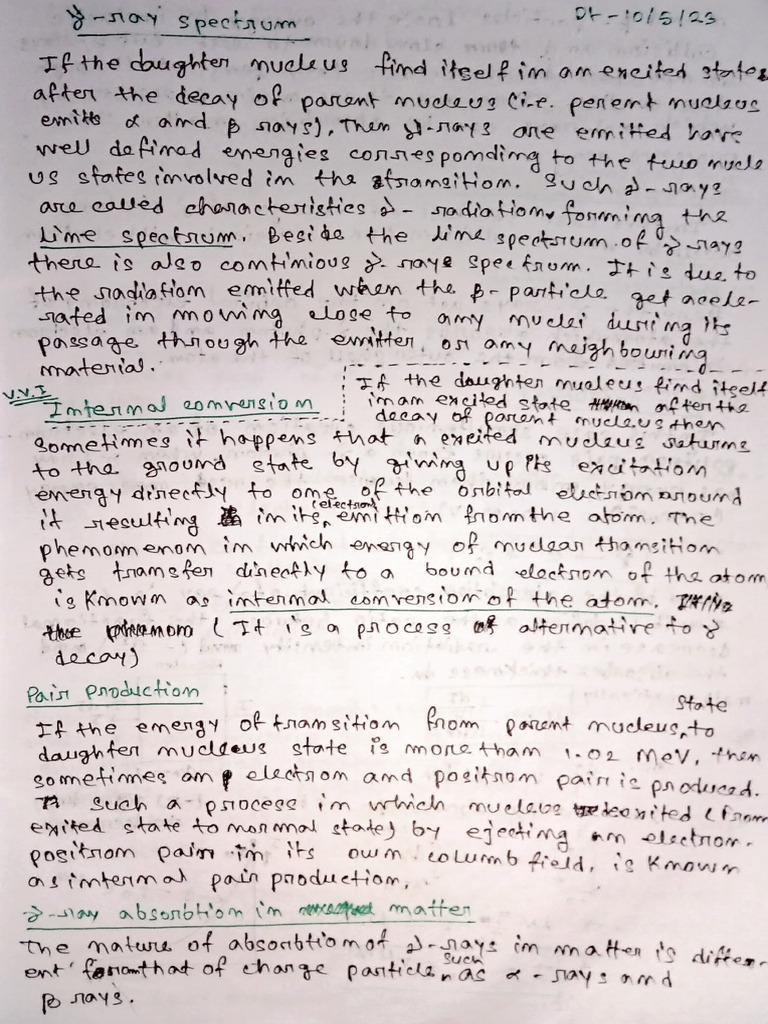 γ-ray spectrum
Dt-10/5/23
If the daughter nucleus find itself in an excited states
after the decay of parent nucleus (i.e. perent nucleus
emitts α and β rays), Then γ-rays are emitted have
well defined energies corresponding to the two nucle
us states involved in the transition. Such γ-rays
are called characteristics γ- radiation, forming the
Line spectrum. Beside the line spectrum of γ-rays
there is also continious γ-rays spectrum. It is due to
the radiation emitted when the β-particle get accele-
rated in moving close to any nuclei during its
passage through the emitter, or any neighbouring
material.
V.V.I
Internal conversion
If the daughter nucleus find itself
in an excited state after the
decay of parent nucleus then
sometimes it happens that a excited nucleus returns
to the ground state by giving up its excitation
energy directly to one of the orbital electron around
it resulting in its (electron) emittion from the atom. The
phenomenon in which energy of nuclear thansition
gets transfer directly to a bound electron of the atom
is known as internal conversion of the atom.
(It is a process of alternative to γ
decay)
Pair production :
If the energy of transition from parent nucleus state to
daughter nucleus state is more than 1.02 MeV, then
sometimes an electron and positron pair is produced.
Such a process in which nucleus exited (from
exited state to normal state) by ejecting an electron-
positron pair in its own columb field, is known
as internal pair production.
γ-ray absorbtion in matter
The nature of absorbtion of γ-rays in matter is differ-
ent from that of charge particle such as α-rays and
β rays.